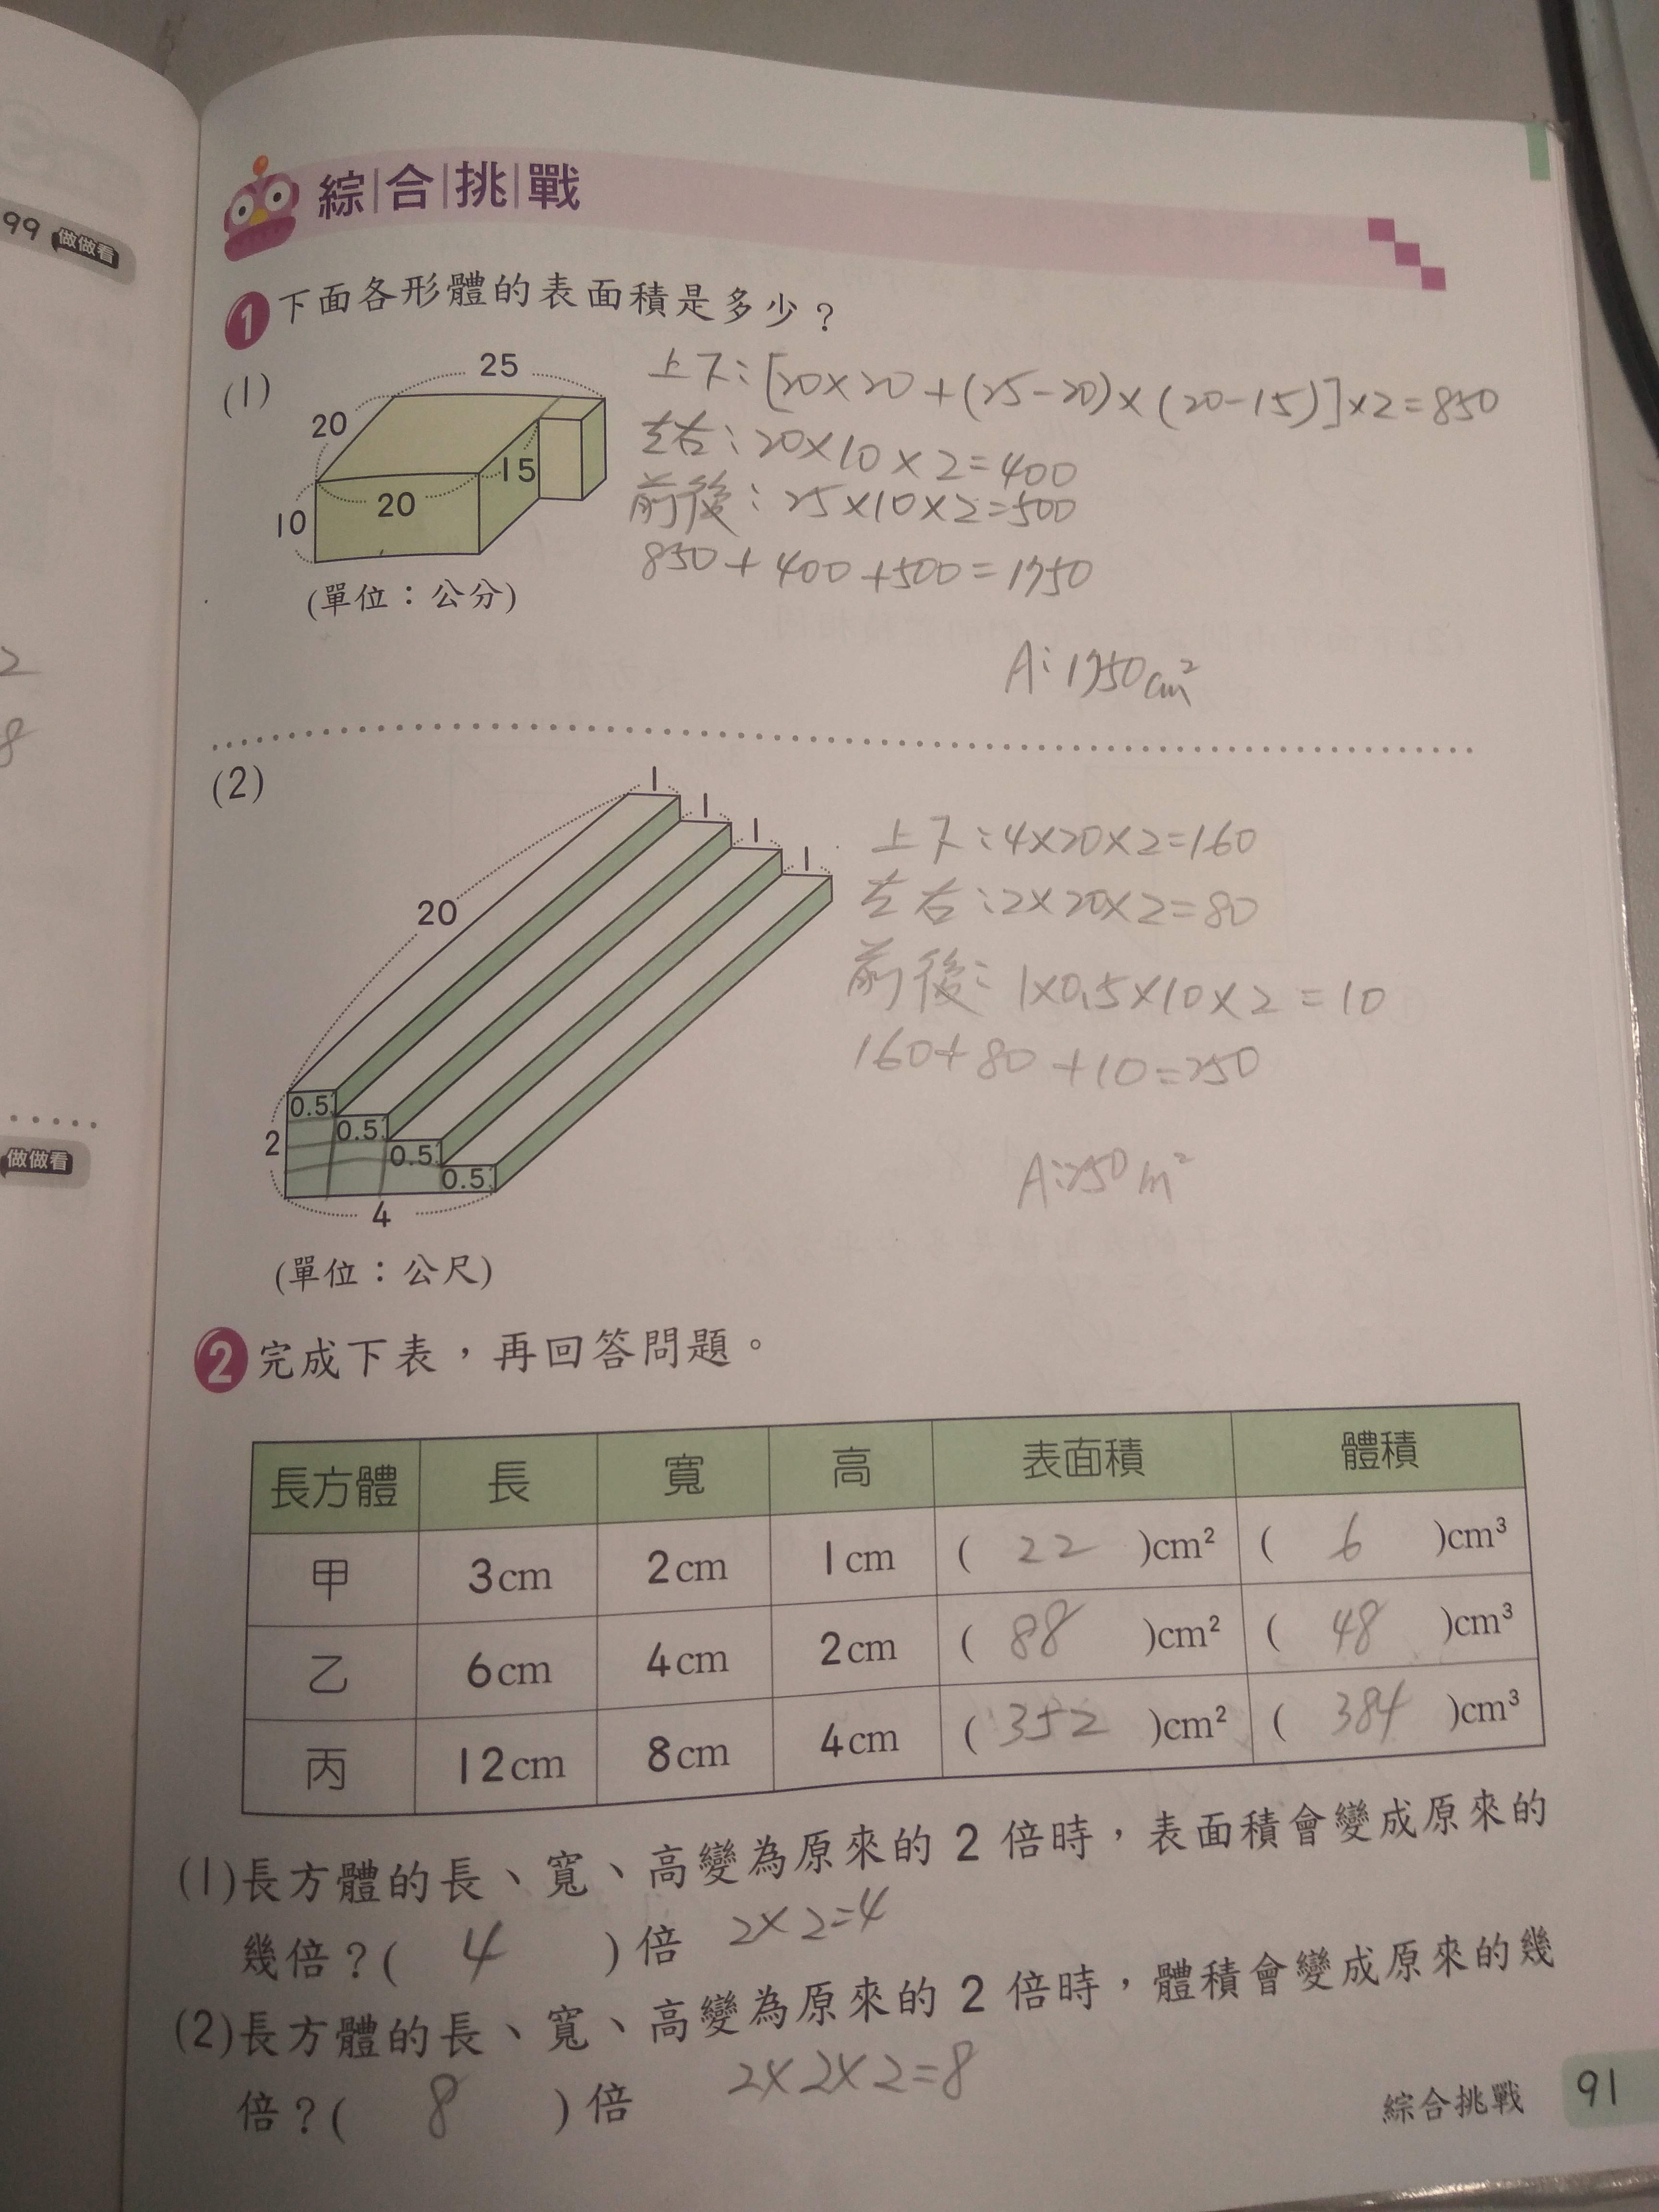 99 做做看
2
8
做做看
綜合挑戰
1 下面各形體的表面積是多少？
(1)
25
20
15
20
10
(單位：公分)
上下：[20×20+(25-20)×(20-15)]×2=850
左右：20×10×2=400
前後：25×10×2=500
850+400+500=1750
A：1750cm²
(2)
1
1
1
1
20
0.5
0.5
0.5
0.5
2
4
(單位：公尺)
上下：4×20×2=160
左右：2×20×2=80
前後：1×0.5×10×2=10
160+80+10=250
A：250m²
2 完成下表，再回答問題。
長方體 長 寬 高 表面積 體積
甲 3cm 2cm 1cm ( 22 )cm² ( 6 )cm³
乙 6cm 4cm 2cm ( 88 )cm² ( 48 )cm³
丙 12cm 8cm 4cm ( 352 )cm² ( 384 )cm³
(1)長方體的長、寬、高變為原來的 2 倍時，表面積會變成原來的
幾倍？( 4 )倍 2×2=4
(2)長方體的長、寬、高變為原來的 2 倍時，體積會變成原來的幾
倍？( 8 )倍 2×2×2=8
綜合挑戰 91